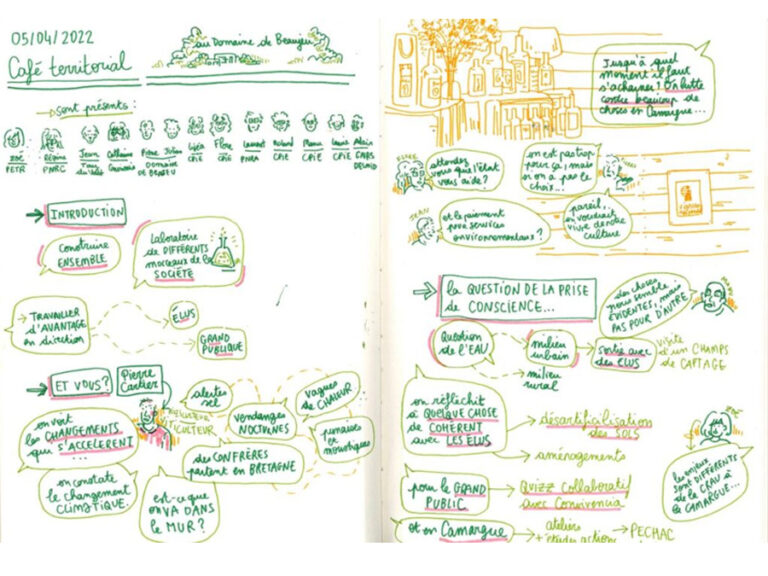 05/04/2022
Café territorial
au Domaine de Beaujeu
Sont présents :
Zoé
PETR
Régine
PNRC
Jean
Catherine
Pierre
Julian
DOMAINE
DE BEAUJEU
CPIE
Flore
CPIE
Laurent
Roland
CPIE
CPIE
Laurie
CPIE
Alain
INTRODUCTION
construire
ENSEMBLE
Laboratoire
de DIFFÉRENTS
morceaux de la
SOCIÉTÉ
TRAVAILLER
D'AVANTAGE
en direction
ÉLUS
GRAND
PUBLIQUE
ET VOUS?
Pierre
Cartier
alertes
sel
vagues
de CHALEUR
vendanges
NOCTURNES
punaises et
moustiques
on voit
les CHANGEMENTS
qui S'ACCÉLÈRENT...
des CONFRÈRES
partent en BRETAGNE
on constate
le changement
CLIMATIQUE.
est-ce que
on VA DANS
le MUR?
Jusqu'à quel
moment il faut
s'acharner? On lutte
contre beaucoup de
choses en Camargue...
attendez
vous que l'état
vous aide?
on est pas trop
pour ça, mais
si on a pas le
choix...
JEAN
et le paiement
pour services
environnementaux?
pareil,
on voudrait
vivre de notre
culture
la QUESTION DE LA PRISE
de CONSCIENCE...
des choses
nous semble
ÉVIDENTES, mais
PAS POUR D'AUTRE
Question
de l'EAU
milieu
urbain
milieu
rural
sortie avec
des ELUS
VISITE
D'UN CHAMPS
DE CAPTAGE
on réfléchit
à QUELQUE CHOSE
de COHÉRENT
avec LES ELUS
désartificilisation
des SOLS
aménagements
ZOÉ
les enjeux
sont DIFFÉRENTS
de la CRAU à
la CAMARGUE...
pour le GRAND
PUBLIC
Quizz Collaboratif
avec Convivencia
et en Camargue
ateliers
+ études action
PECHAC